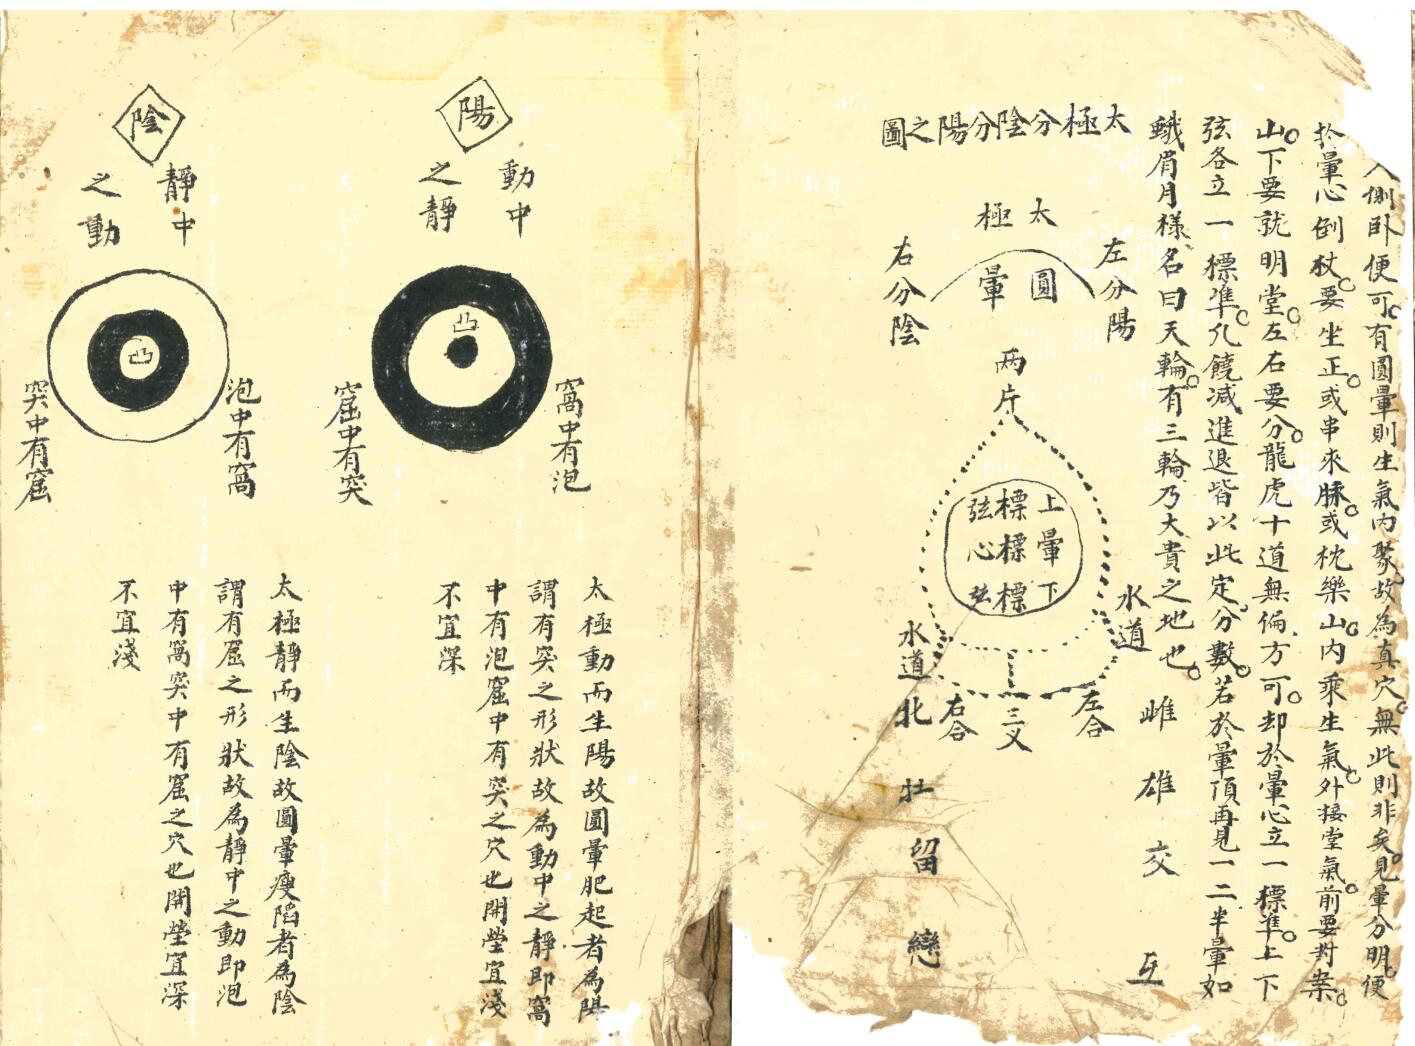 人側卧便可有圓暈則生氣內聚故為真穴無此則非矣見暈分明便
於暈心倒杖要坐正或串來脉或枕樂山內乘生氣外接堂氣前要對案
山下要就明堂左右要分龍虎十道無偏方可却於暈心立一標準上下
弦各立一標準凡饒減進退皆以此定分數若於暈頂再見一二半暈如
蛾眉月樣名曰天輪有三輪乃大貴之地也
太極分陰分陽之圖
太極
左分陽
圓暈
右分陰
两片
上標弦
暈標心
下標弦
水道
水道
左合
三义
右合
雌雄交互
北牡留戀
陽
動中
之靜
凸
窩中有泡
窟中有突
太極動而生陽故圓暈肥起者為陽
謂有突之形狀故為動中之靜即窩
中有泡窟中有突之穴也開塋宜淺
不宜深
陰
靜中
之動
凹
泡中有窩
突中有窟
太極靜而生陰故圓暈瘦陷者為陰
謂有窟之形狀故為靜中之動即泡
中有窩突中有窟之穴也開塋宜深
不宜淺